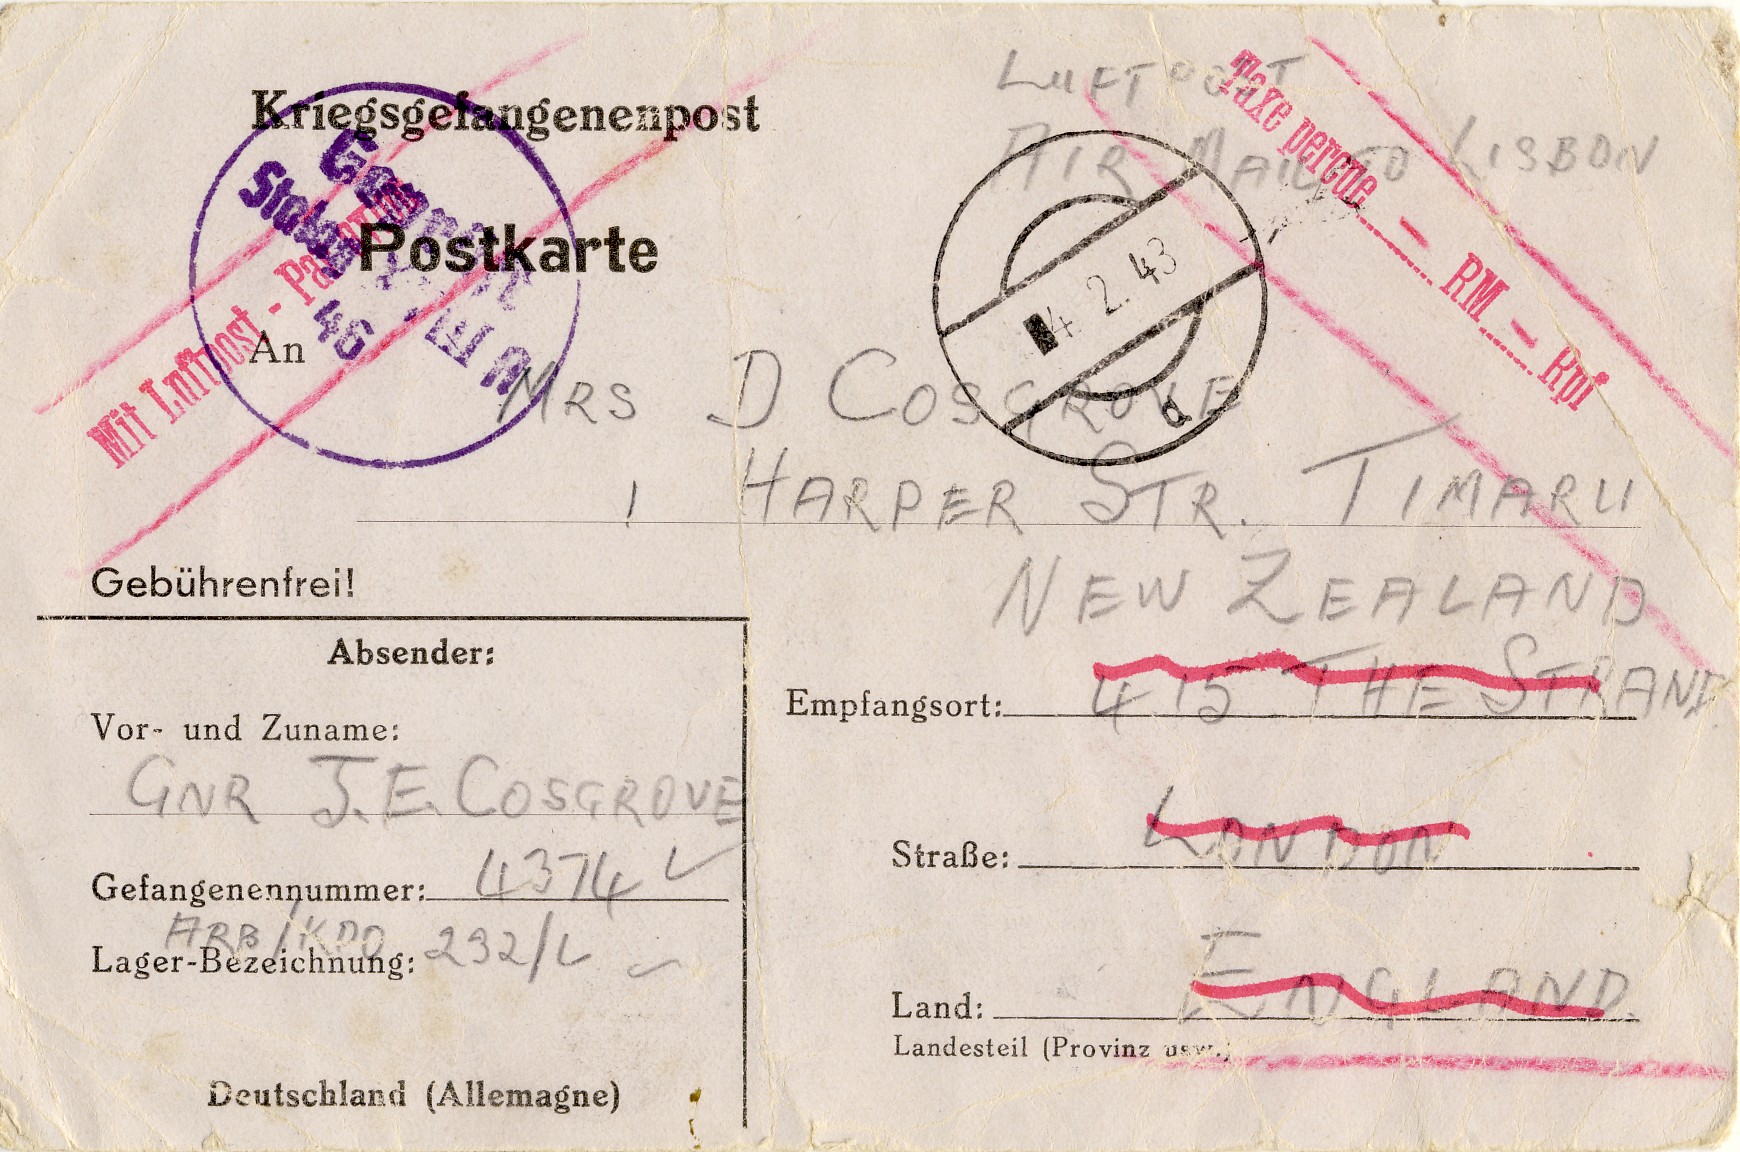 Kriegsgefangenenpost
LUFTPOST
AIR MAIL TO LISBON
Taxe percue - RM - Rpf
Geprüft
Stalag VIII
46
Postkarte
Mit Luftpost - Par avion
4. 2. 43
d
An
MRS D COSGROVE
1 HARPER STR. TIMARU
NEW ZEALAND
Gebührenfrei!
Absender:
Vor- und Zuname:
GNR J.E. COSGROVE
Gefangenennummer: 4374
ARB/KDO 232/L
Lager-Bezeichnung:
Deutschland (Allemagne)
Empfangsort: 415 THE STRAND
Straße: LONDON
Land: ENGLAND.
Landesteil (Provinz usw.)